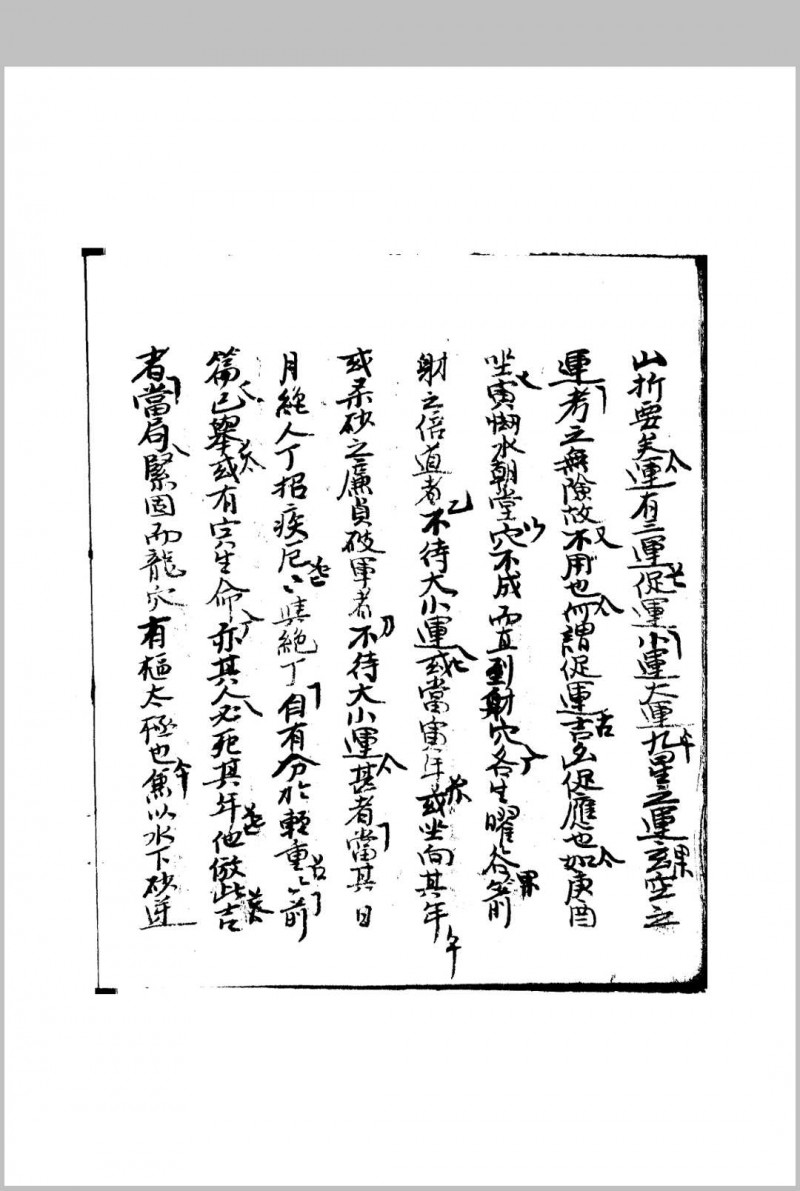 山折要矣運有三運促運小運大運九星之運玄空之
運考之無險故不用也何謂促運吉凶促應也如庚酉
坐寅㘭水朝堂穴不成而直到射穴各生曜谷箭
射之倍道者不待大小運或當寅年或坐向其年
或呆砂之廉貞破軍者不待大小運甚者當其日
月絕人丁招疾厄〻與絕丁自有分於輕重〻前
篇已舉或有穴生命亦其人必死其年他倣此吉
者當局緊固而龍穴有樞太極也兼以水下砂逆